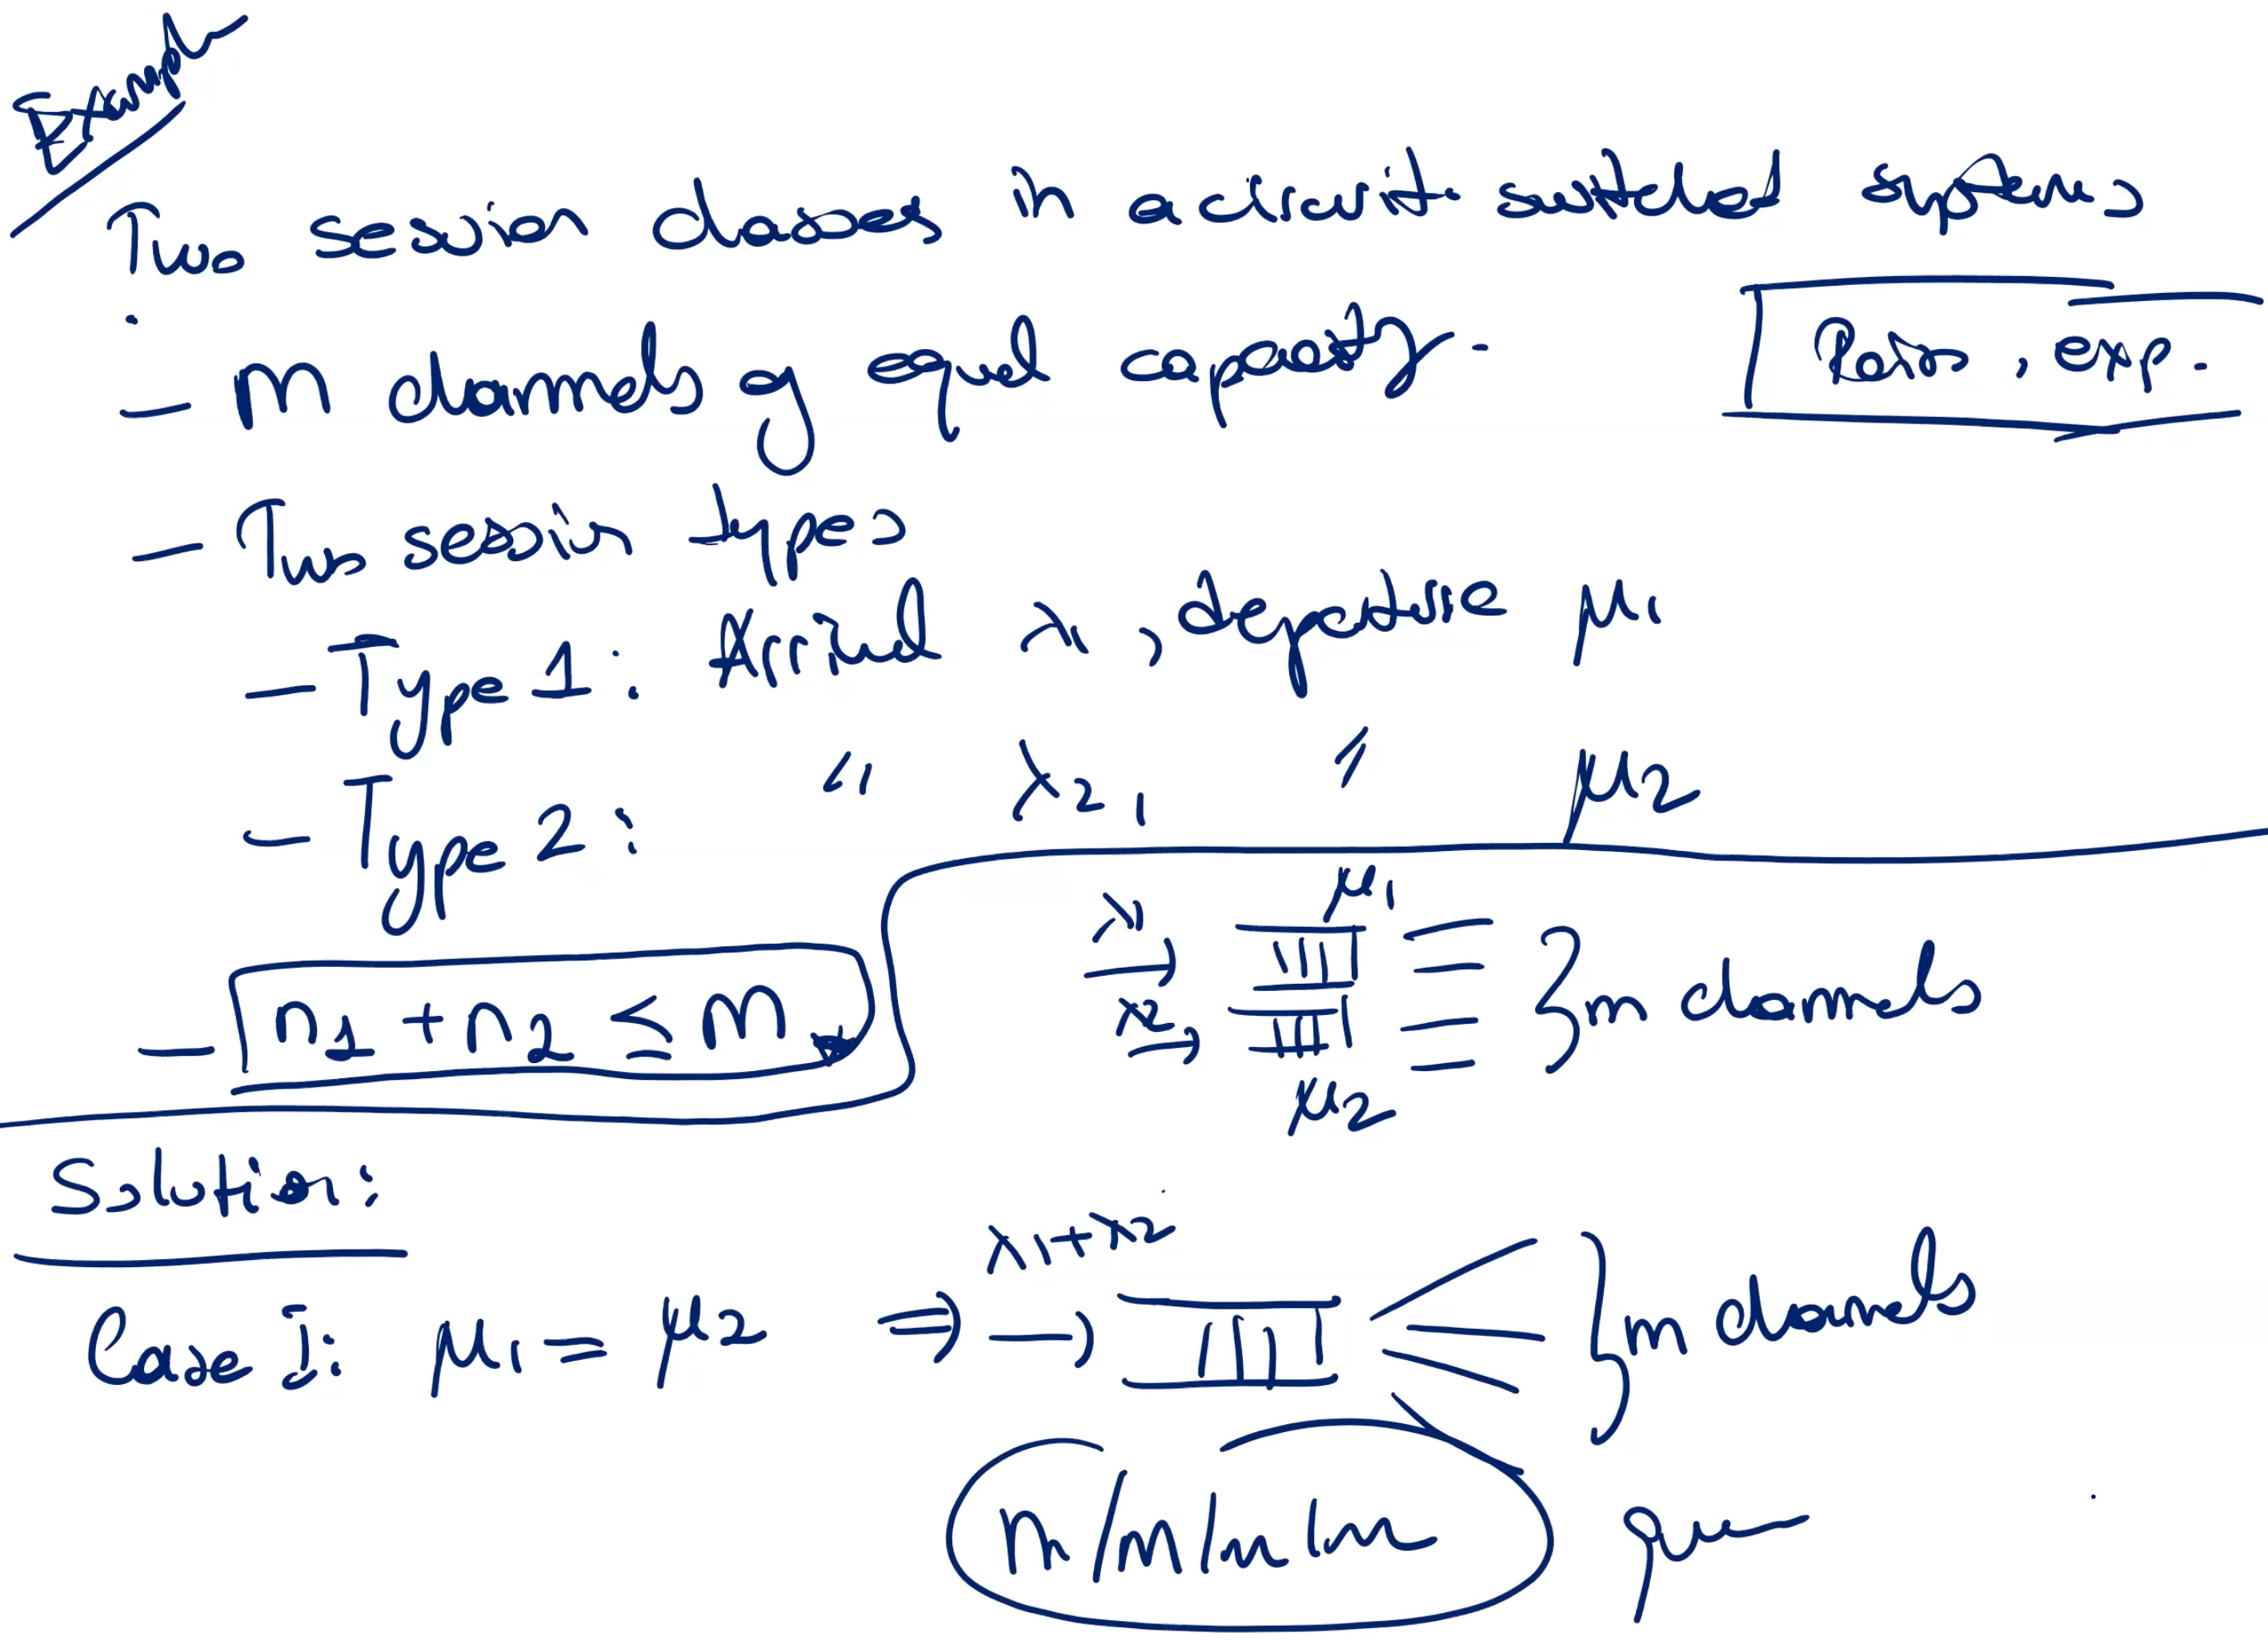 Example
Two session classes in a circuit switched systems
- m channels of equal capacity.
Poiss, exp.
- Two session types
- Type 1: Arrival λ1, departure μ1
- Type 2: " λ2, " μ2
- n1 + n2 ≤ m
λ1 μ1
λ2 μ2 } m channels
Solution:
Case I: μ1 = μ2 ⇒ λ1+λ2 → } m channels
m/m/m/m queue